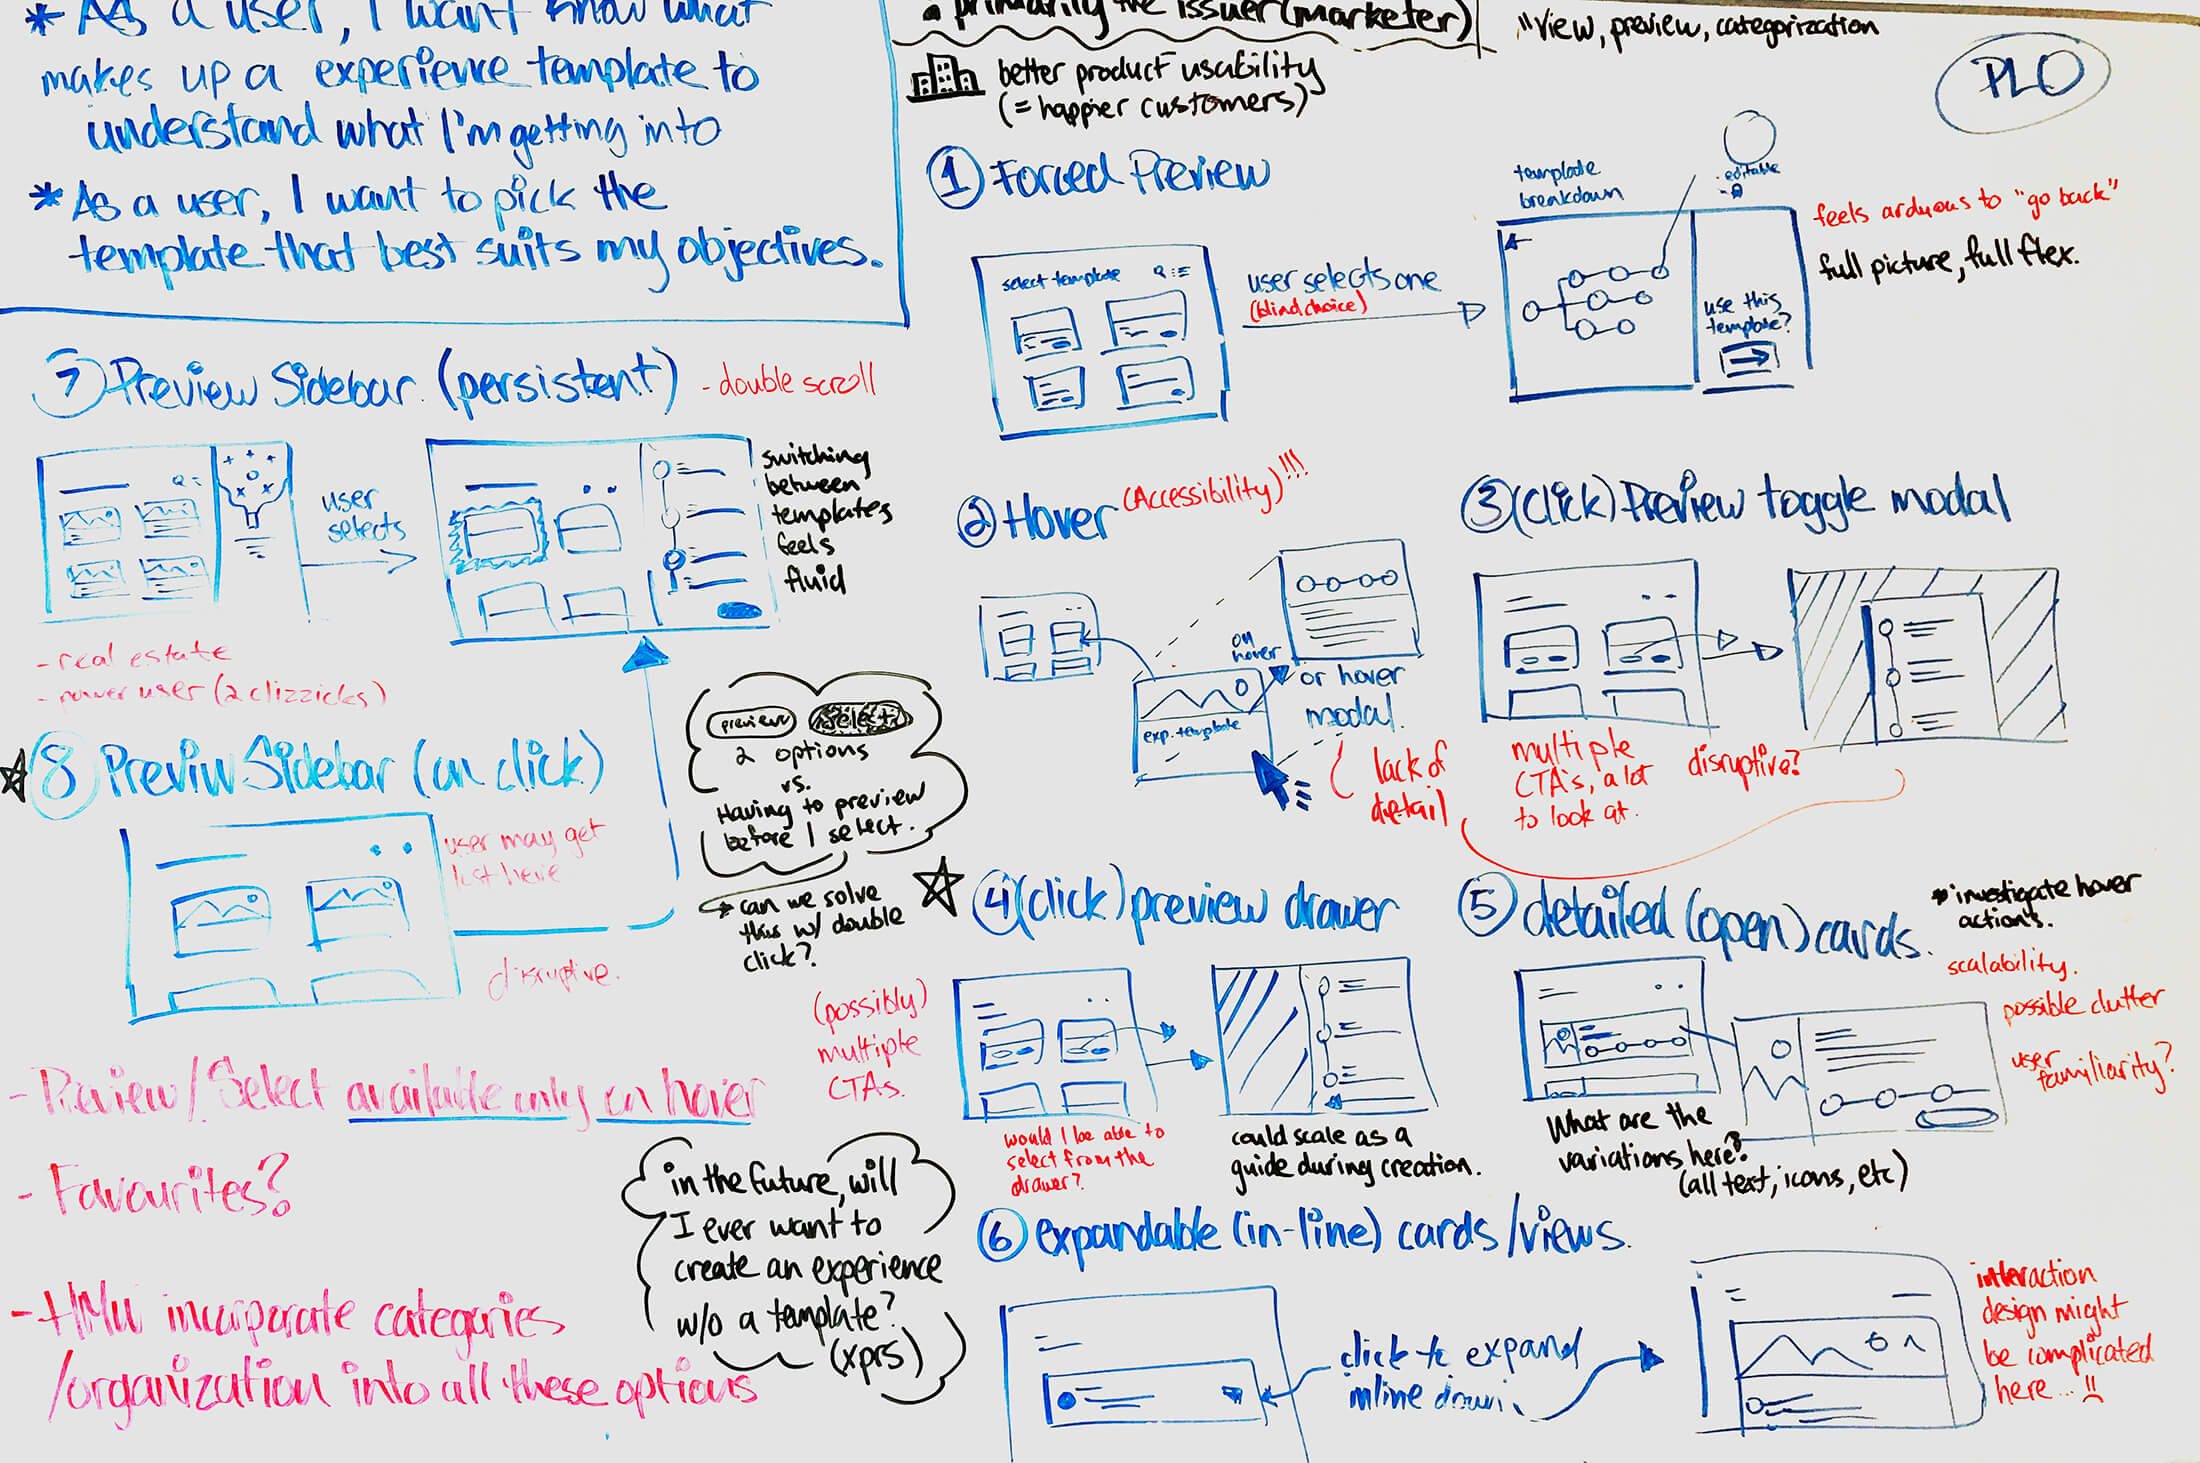 * As a user, I want know what
makes up a experience template to
understand what I'm getting into
* As a user, I want to pick the
template that best suits my objectives.
primarily the issuer (marketer)
better product usability
(= happier customers)
"view, preview, categorization
PLO
① Forced Preview
select template
user selects one
(blind choice)
template
breakdown
editable
use this
template?
feels arduous to "go back"
full picture, full flex.
⑦ Preview Sidebar (persistent)
- double scroll
user
selects
switching
between
templates
feels
fluid
- real estate
- power user (2 clizzicks)
② Hover (Accessibility)!!!
on
hover
exp. template
or hover
modal.
lack of
detail
③ (click) Preview toggle modal
multiple
CTA's, a lot
to look at.
disruptive?
⑧ Previw Sidebar (on click)
user may get
lost here
disruptive.
preview
select
2 options
vs.
Having to preview
before I select.
can we solve
this w/ double
click?
④ (click) preview drawer
(possibly)
multiple
CTAs.
would I be able to
select from the
drawer?
could scale as a
guide during creation.
⑤ detailed (open) cards.
* investigate hover
actions.
scalability.
possible clutter
user
familiarity?
What are the
variations here?
(all text, icons, etc)
- Preview/Select available only on hover
- Favourites?
- HMW incorporate categories
/organization into all these options
in the future, will
I ever want to
create an experience
w/o a template?
(xprs)
⑥ expandable (in-line) cards/views.
click to expand
inline
interaction
design might
be complicated
here...!!